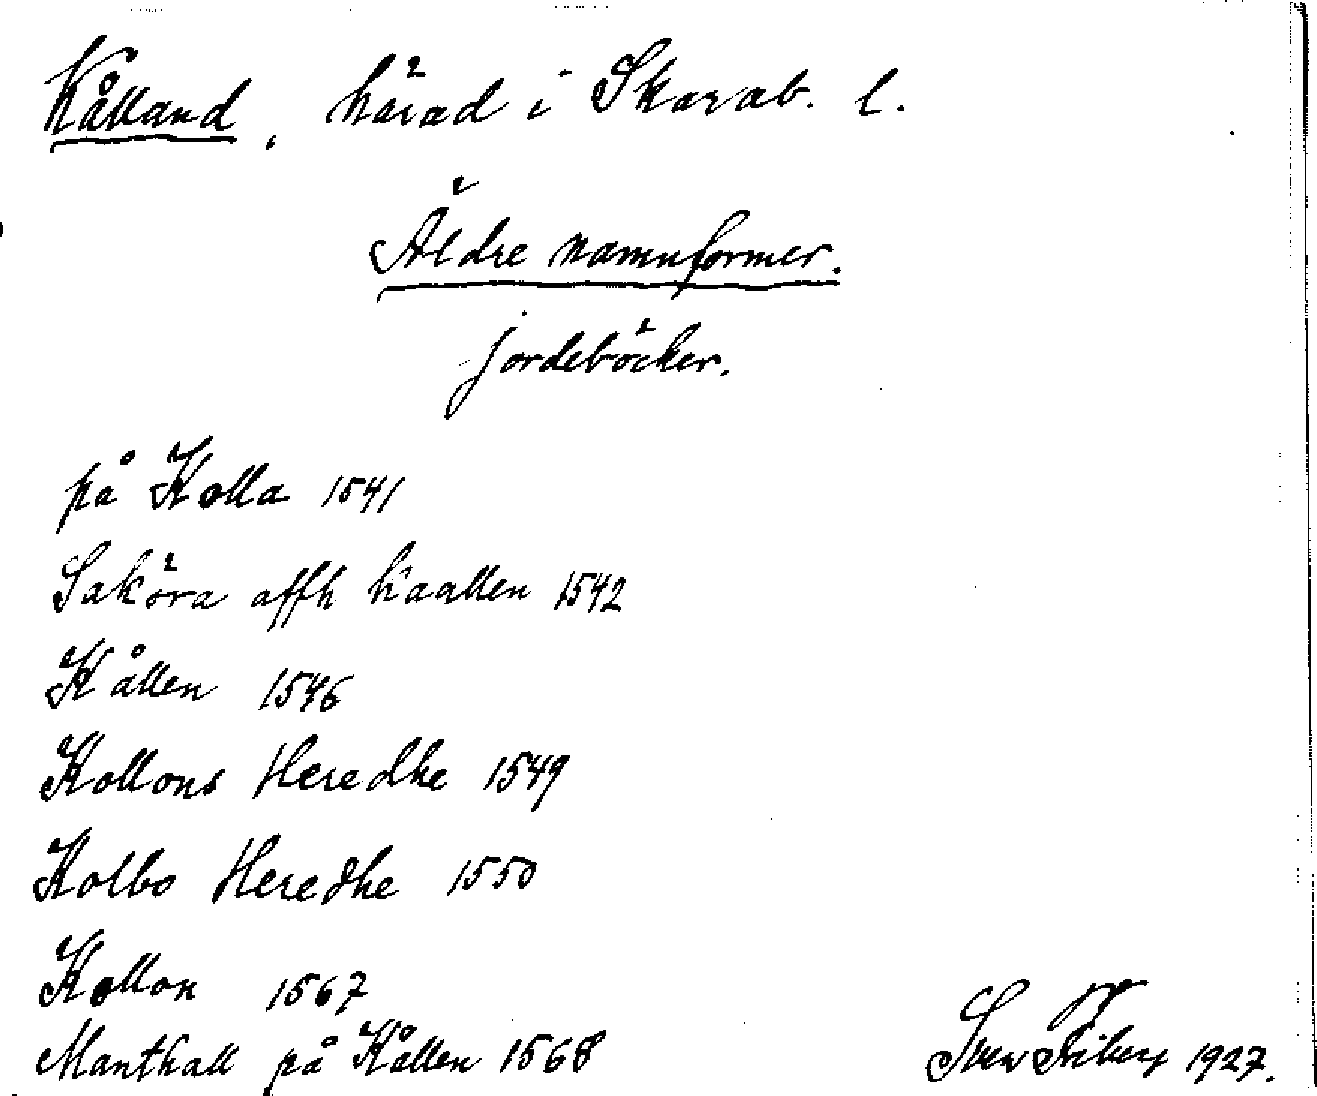 Kålland, härad i Skarab. l.
Äldre namnformer.
jordeböcker.
på Kolla 1541
Saköra affh Kaallen 1542
Kållen 1546
Kollons Heredhe 1549
Kolbo Heredhe 1550
Kollon 1567
Manthall på Kållen 1568
Sven Friberg 1927.